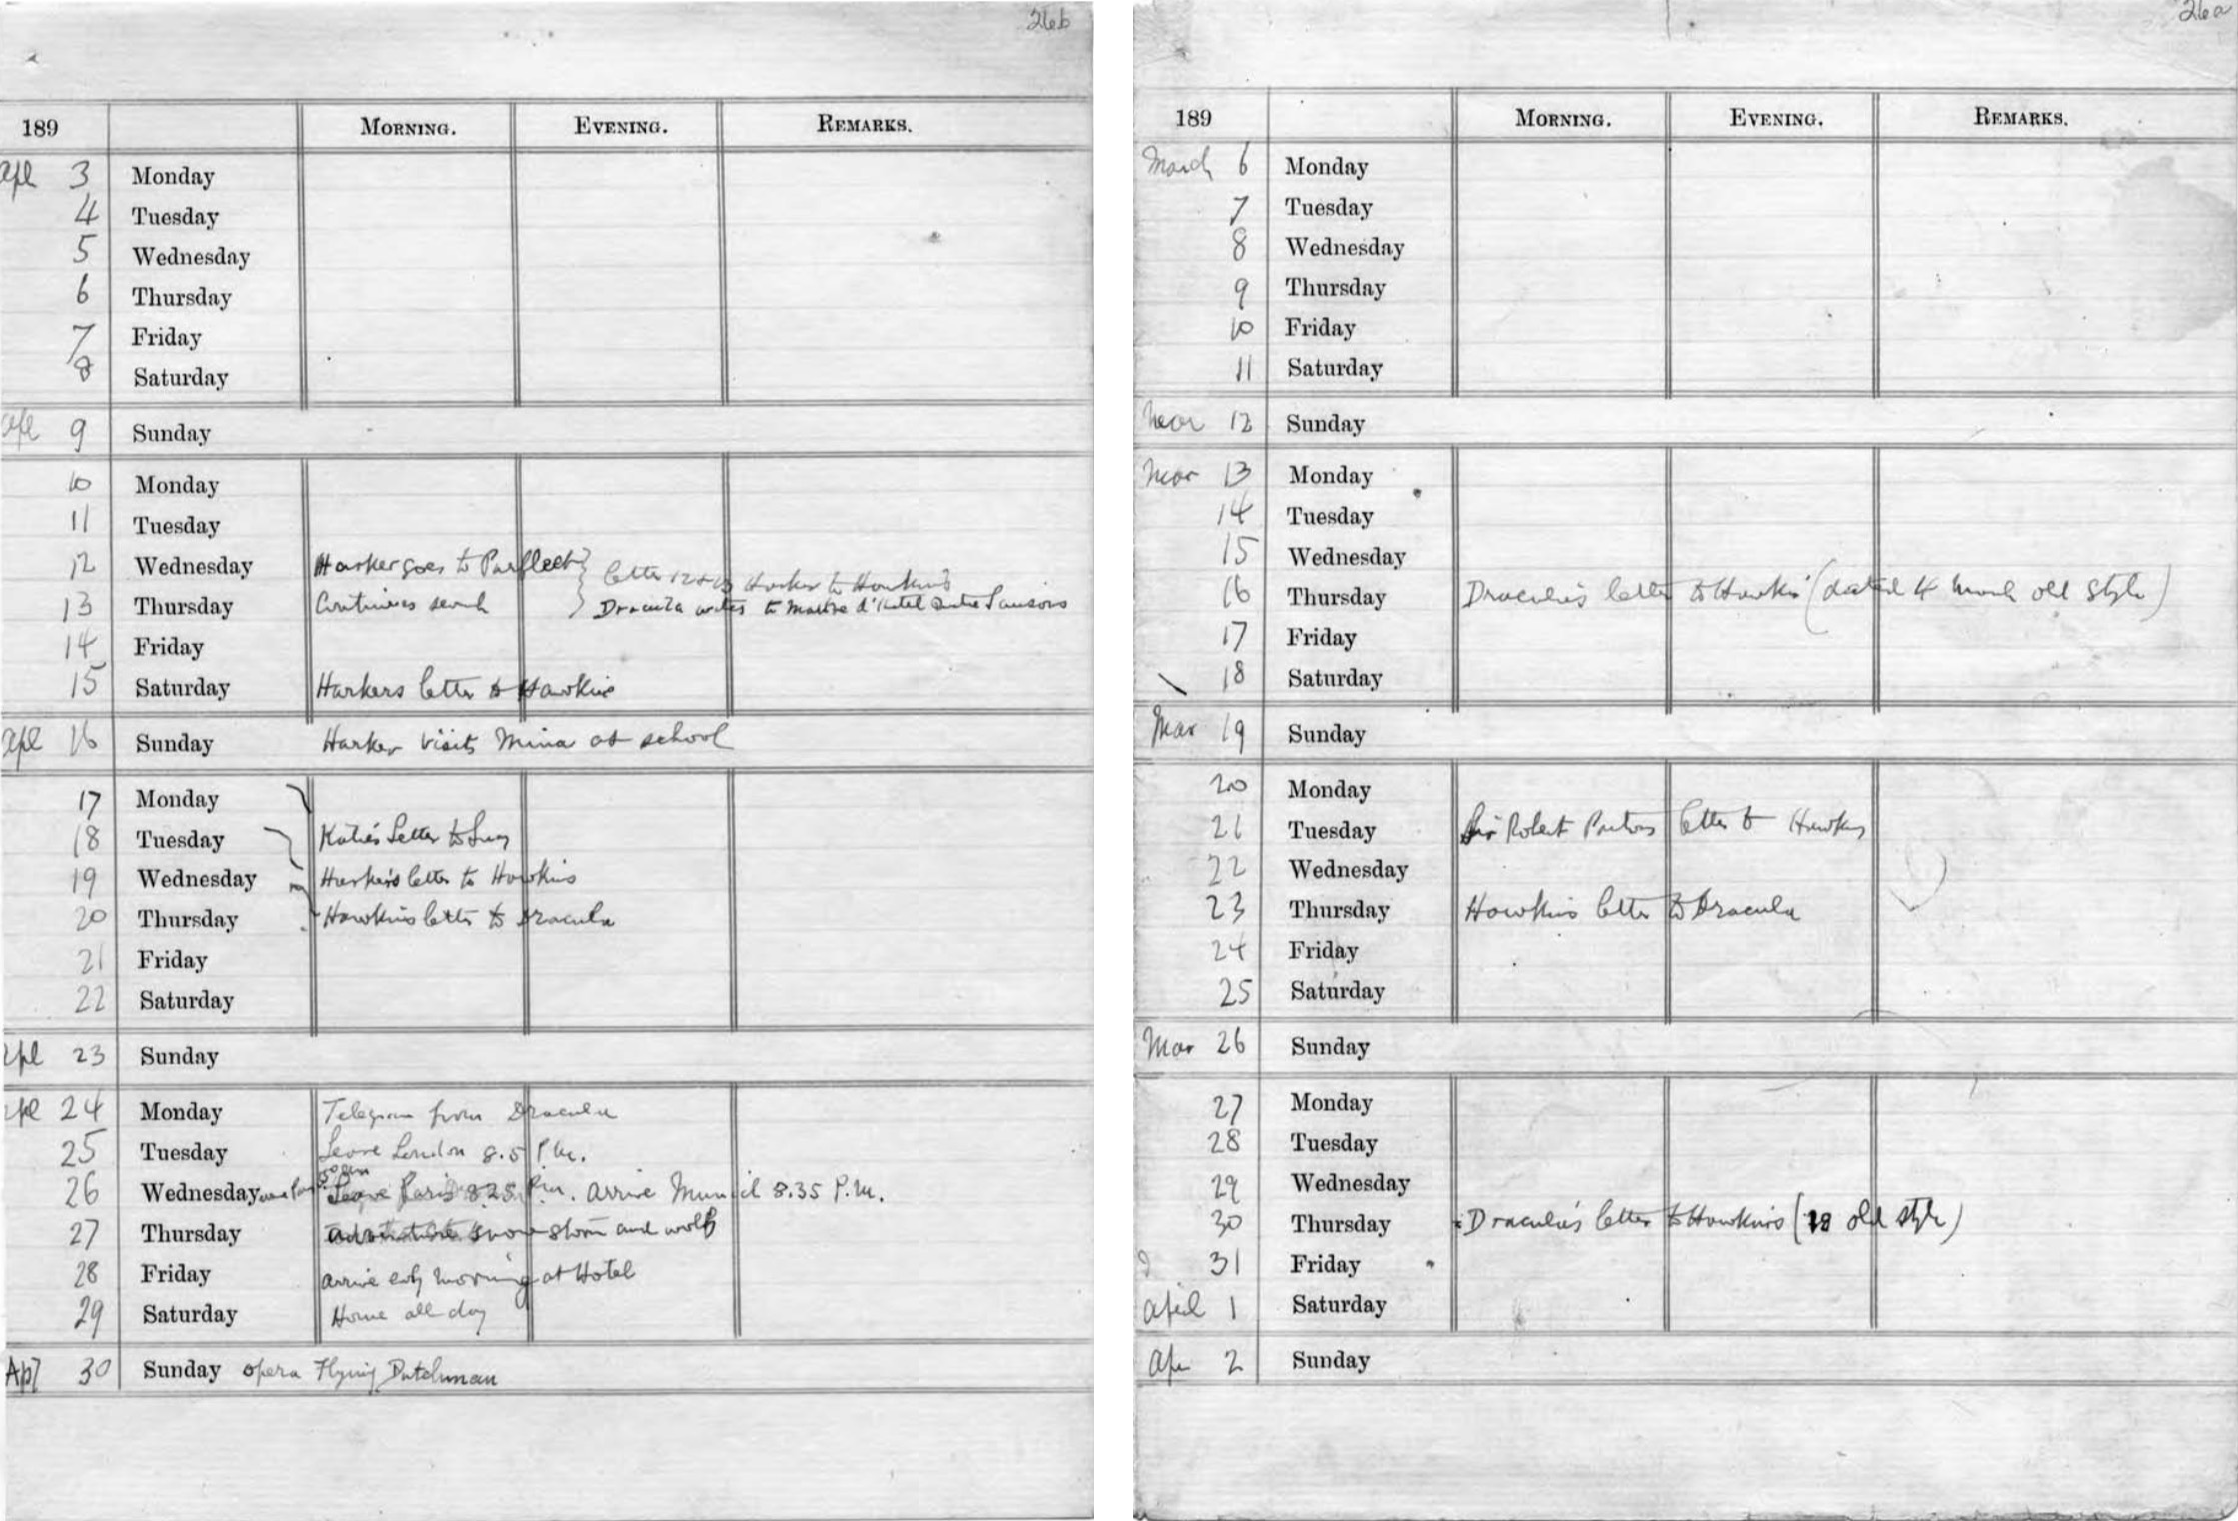 26b
189 MORNING. EVENING. REMARKS.
Apl 3 Monday
4 Tuesday
5 Wednesday
6 Thursday
7 Friday
8 Saturday
Apl 9 Sunday
10 Monday
11 Tuesday
12 Wednesday Harker goes to Purfleet } letter 12 & 13 Harker to Hawkins
13 Thursday Continues search } Dracula writes to Maitre d'hotel Quatre Saisons
14 Friday
15 Saturday Harkers letter to Hawkins
Apl 16 Sunday Harker visits Mina at school
17 Monday
18 Tuesday Katie's Letter to Lucy
19 Wednesday Harker's letter to Hawkins
20 Thursday Hawkins letter to Dracula
21 Friday
22 Saturday
Apl 23 Sunday
Apl 24 Monday Telegram from Dracula
25 Tuesday Leave London 8.5 P.m.
26 Wednesday Leave Paris 8.25 P.m. arrive Munich 8.35 P.m.
27 Thursday adventure snow storm and wolf
28 Friday arrive early morning at Hotel
29 Saturday Home all day
Apl 30 Sunday opera Flying Dutchman
26a
189 MORNING. EVENING. REMARKS.
March 6 Monday
7 Tuesday
8 Wednesday
9 Thursday
10 Friday
11 Saturday
Mar 12 Sunday
Mar 13 Monday
14 Tuesday
15 Wednesday
16 Thursday Dracula's letter to Hawkins (dated 4 March old style)
17 Friday
18 Saturday
Mar 19 Sunday
20 Monday
21 Tuesday Sir Robert Partons letter to Hawkins
22 Wednesday
23 Thursday Hawkins letter to Dracula
24 Friday
25 Saturday
Mar 26 Sunday
27 Monday
28 Tuesday
29 Wednesday
30 Thursday Dracula's letter to Hawkins (18 old style)
31 Friday
April 1 Saturday
Apr 2 Sunday